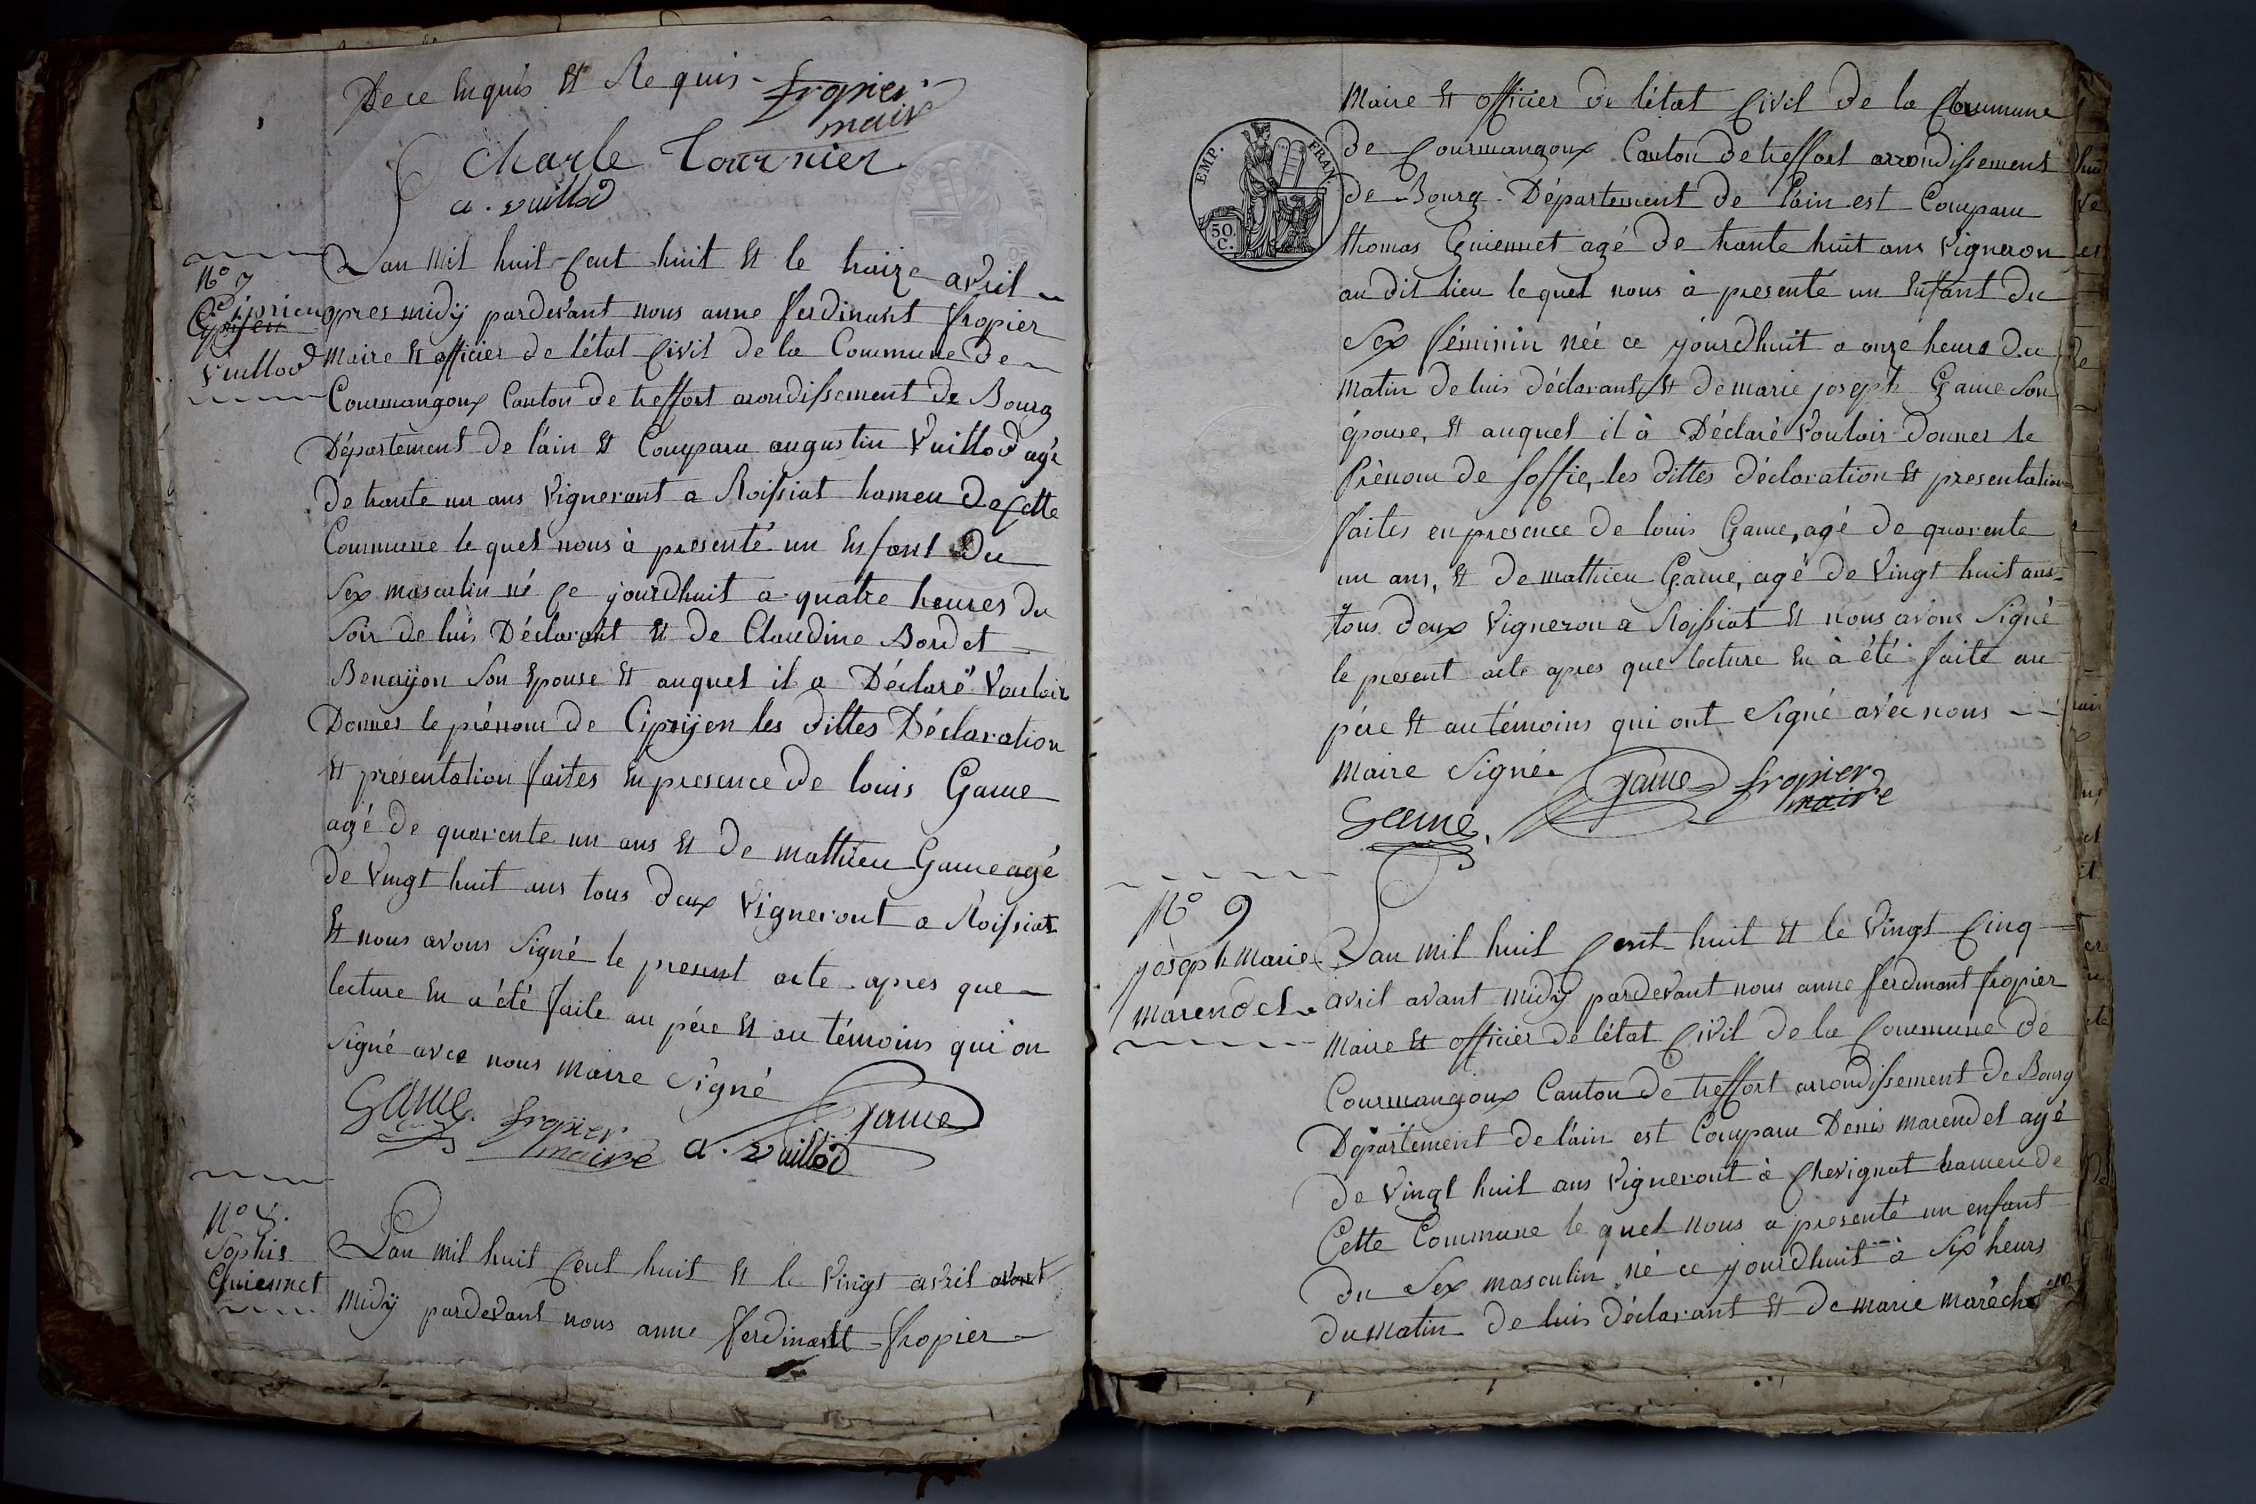 De ce Enquis Et Requis fropier
maire
Charle Tournier
a. vuillod
N° 7
Ciprien
Cyprijen
Vuillod
Lan Mil huit Cent huit Et le traize avril
apres midÿ pardevant nous anne ferdinant fropier
Maire Et officier de létat Civil de la Commune de
Courmangoux Canton de treffort arondissement de Bourg
Département de l'ain Et Comparu augustin Vuillod agé
de trante un ans Vigneront a Roissiat hameu de Cette
Commune le quel nous à presenté un Enfant Du
Sex masculin né Ce jourdhuit a quatre heures du
Soir de luis Déclarant Et de Claudine Bordet
Benaijon Son Epouse Et auquel il a Déclaré Vouloir
Donner le prénom de Ciprijen les dittes Déclaration
Et présentation faites En presence de louis Game
agé de quarente un ans Et De Mathieu Game agé
de Vingt huit ans tous deux Vigneront a Roissiat
Et nous avons Signé le present acte apres que
lecture En a été faite au pére Et au témoins qui on
Signé avec nous Maire Signé
Game. fropier maire a. vuillod Game
N° 8.
Sophie
Guiennet
Lan mil huit Cent huit Et le Vingt avril avant
Midÿ pardevant nous anne ferdinantt fropier
EMP. FRAN.
50 C.
Maire Et officier de létat Civil de la Commune
de Courmangoux Canton de treffort arrondissement
de Bourg Département de l'ain est Comparu
thomas Guiennet agé de trante huit ans Vigneron
au dit lieu le quel nous à presenté un Enfant du
Sex féminin néé ce jourdhuit a onze heurs du
Matin de luis déclarant Et de marie joseph Game Son
épouse, Et auquel il à Déclaré Vouloir donner le
Prénom de Soffie, les dittes déclaration Et presentation
faites en presence de louis Game, agé de quarente
un ans, Et de mathieu Game, agé de Vingt huit ans
tous deux Vigneron a Roissiat Et nous avons Signé
le present acte apres que lecture En à été faite au
pére Et au témoins qui ont Signé avec nous
Maire Signé.
Game. Game fropier maire
N° 9
joseph Marie
Marendet
Lan mil huit Cent huit Et le Vingt Cinq
avril avant Midÿ pardevant nous anne ferdinant fropier
Maire Et officier de létat Civil de la Commune de
Courmangoux Canton de treffort arrondissement de Bourg
Département de l'ain est Comparu Denis Marendet agé
de Vingt huit ans Vigneront à Chevignat hameu de
Cette Commune le quel nous a presenté un enfant
du Sex masculin né ce jourdhuit à Six heurs
du Matin de luis déclarant Et de Marie